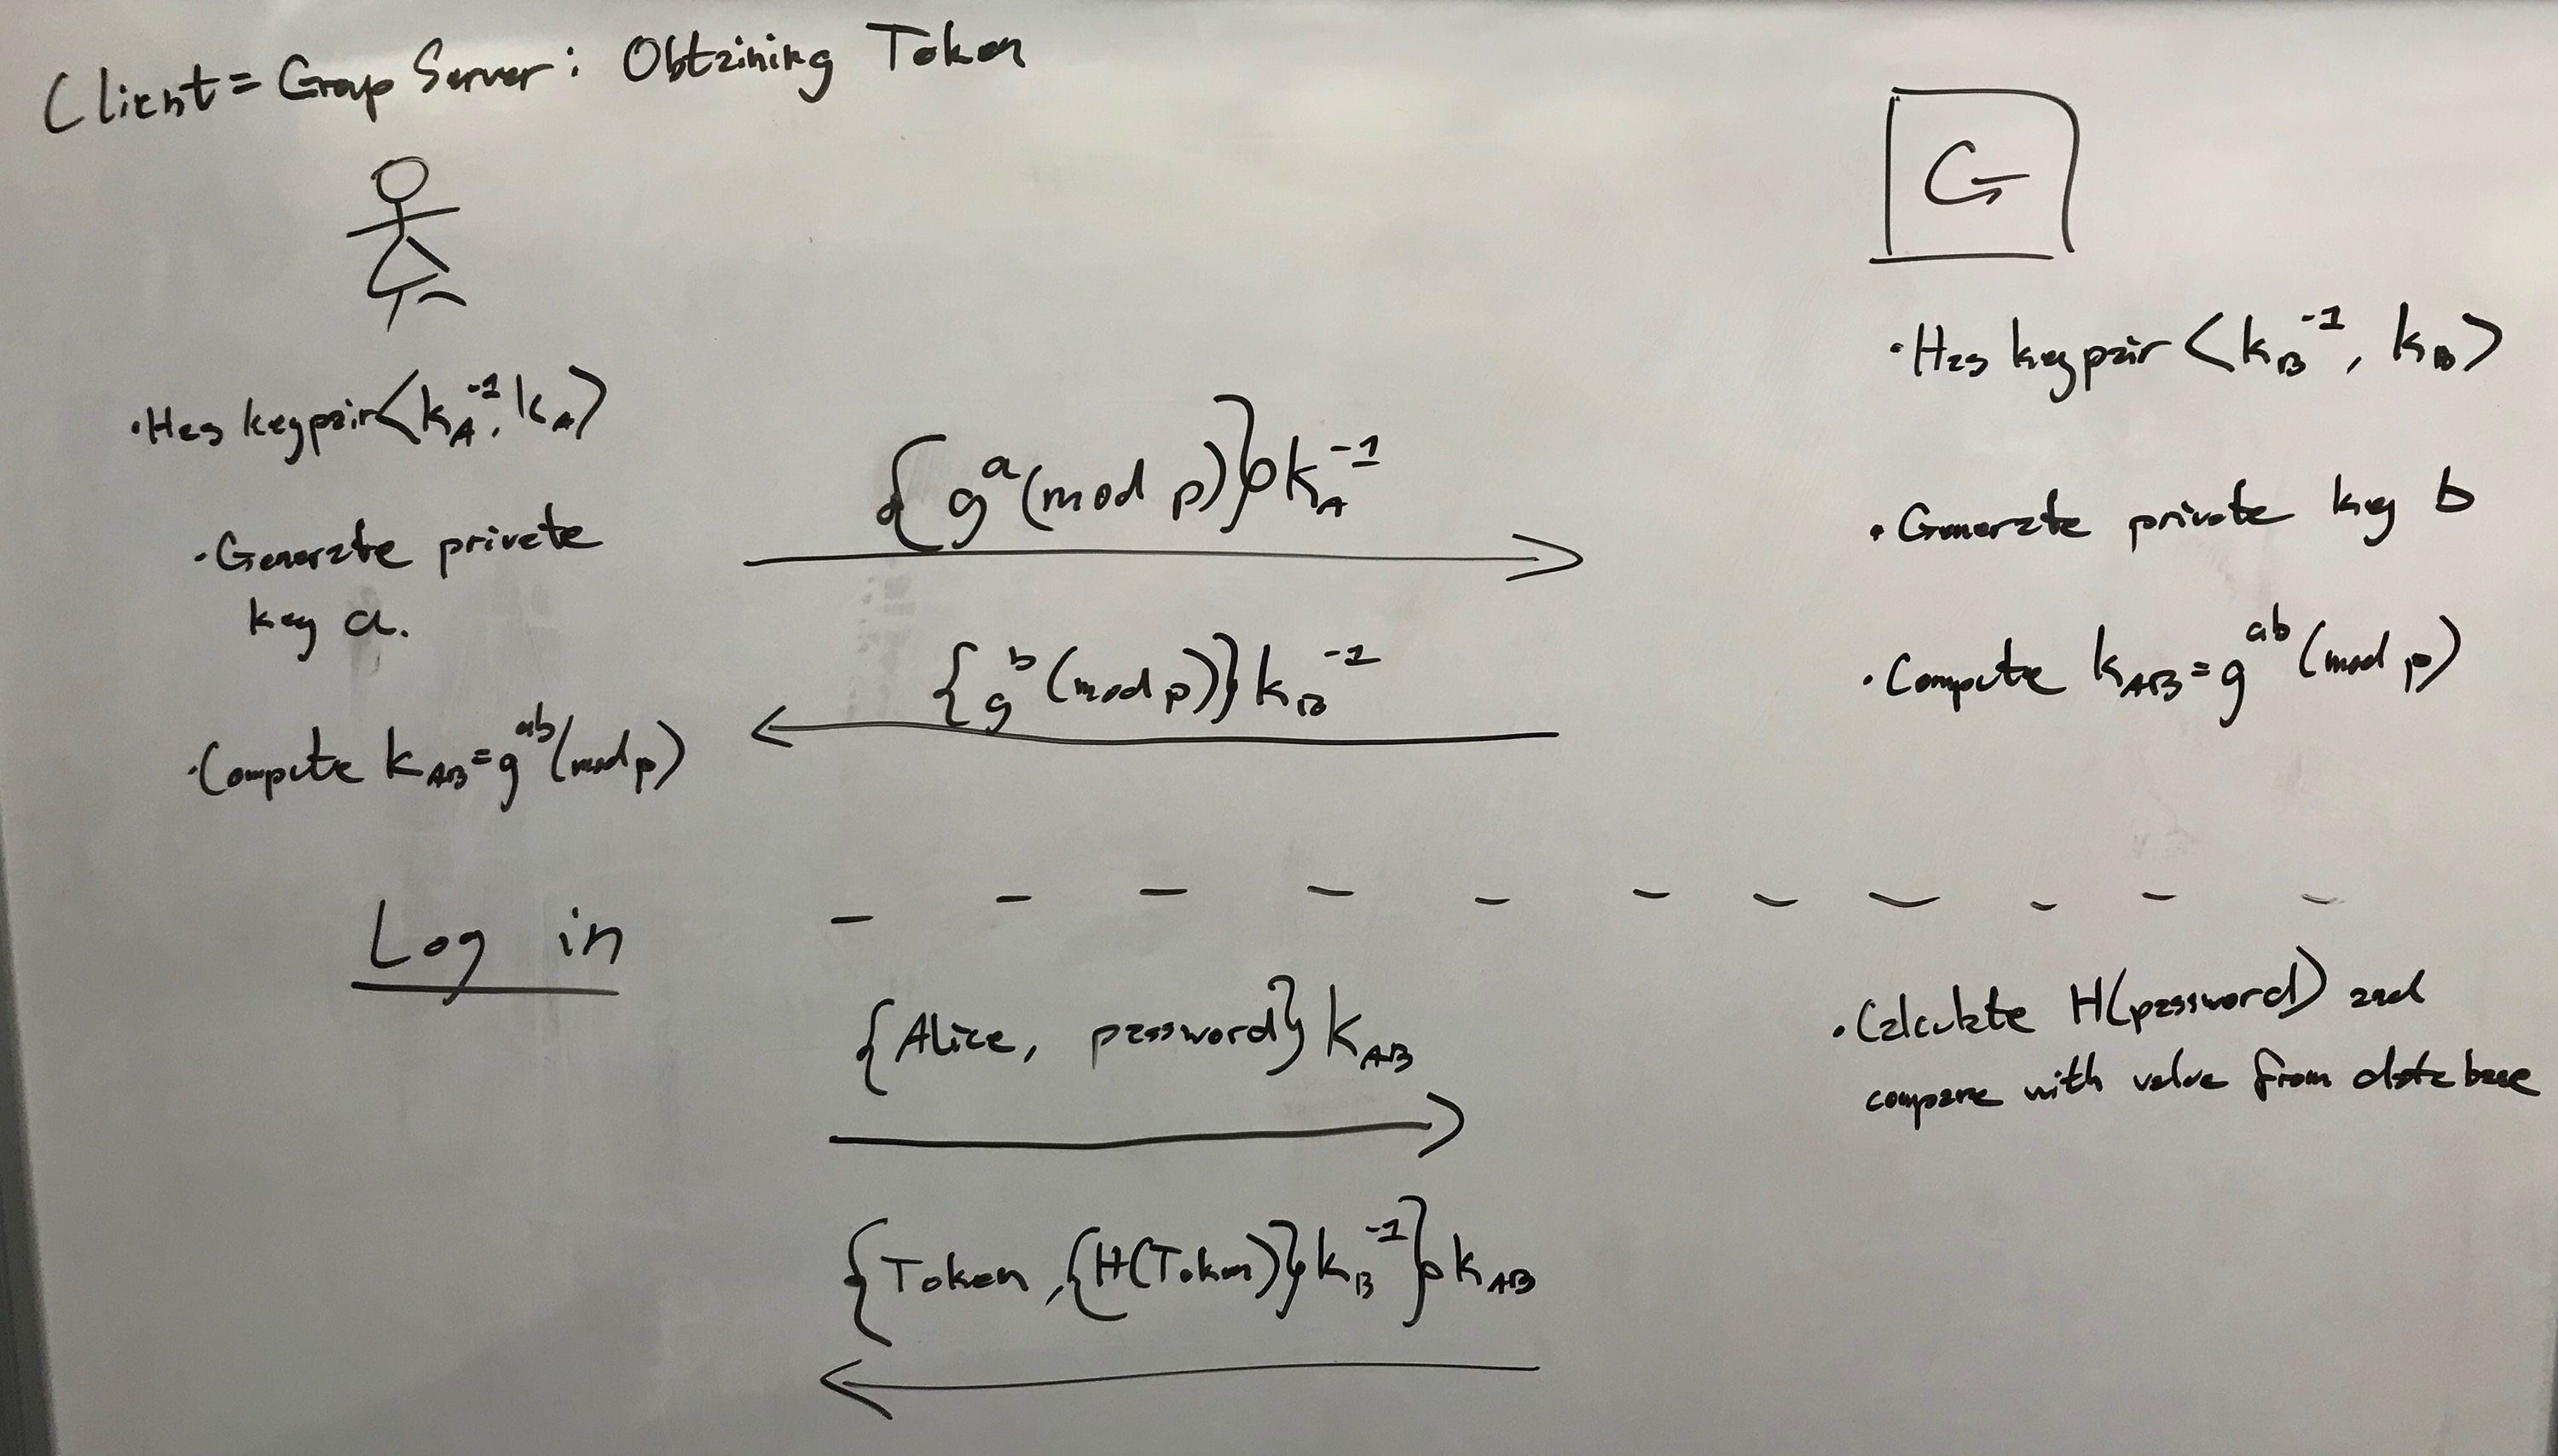 Client = Group Server: Obtaining Token
G
• Has keypair <k_A^-1, k_A>
• Generate private
key a.
• Compute k_AB = g^ab (mod p)
{g^a (mod p)} k_A^-1
{g^b (mod p)} k_B^-1
• Has keypair <k_B^-1, k_B>
• Generate private key b
• Compute k_AB = g^ab (mod p)
Log in
{Alice, password} k_AB
{Token, {H(Token)} k_B^-1} k_AB
• Calculate H(password) and
compare with value from database